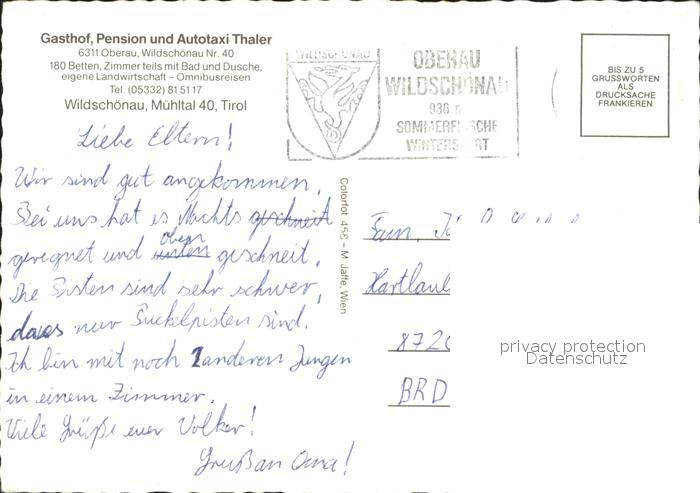 Gasthof, Pension und Autotaxi Thaler
6311 Oberau, Wildschönau Nr. 40
180 Betten, Zimmer teils mit Bad und Dusche,
eigene Landwirtschaft – Omnibusreisen
Tel. (05332) 81 5 1 17
Wildschönau, Mühltal 40, Tirol
WILDSCHÖNAU
OBERAU
WILDSCHÖNAU
936 m
SOMMERFRISCHE
WINTERSPORT
BIS ZU 5
GRUSSWORTEN
ALS
DRUCKSACHE
FRANKIEREN
Liebe Eltern!
Wir sind gut angekommen.
Bei uns hat es Nachts geschneit
geregnet und unten oben geschneit.
Die Pisten sind sehr schwer,
dass nur Buckelpisten sind.
Ich bin mit noch 2 anderen Jungen
in einem Zimmer.
Viele Grüße euer Volker!
Gruß an Oma!
Colorfot 456 – M. Jaffe, Wien
Fam.
Hartlaub
872
BRD
privacy protection
Datenschutz